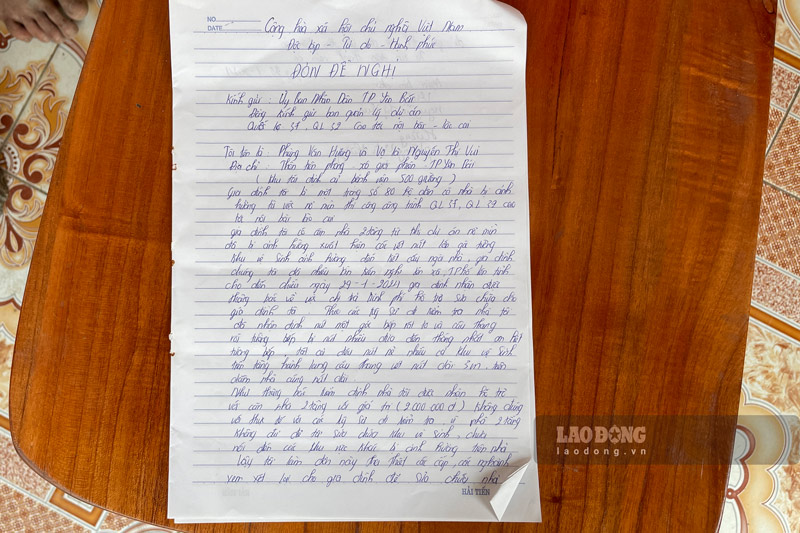 NO.
DATE
Cộng hòa xã hội chủ nghĩa Việt Nam
Độc lập - Tự do - Hạnh phúc
ĐƠN ĐỀ NGHỊ
Kính gửi : Ủy ban Nhân Dân TP Yên Bái
Đồng kính gửi ban quản lý dự án
Quốc lộ 37, QL 32 cao tốc nội bài - lào cai
Tôi tên là : Phùng Văn Hường và Vợ là Nguyễn Thị Vui
Địa chỉ : Thôn tiền phong xã giới phiên TP Yên Bái
( khu tái định cư bệnh viện 500 giường )
Gia đình tôi là một trong số 80 hộ dân có nhà bị ảnh
hưởng từ việc nổ mìn thi công công trình QL 37, QL 32 cao
tốc nội bài lào cai
gia đình tôi có căn nhà 2 tầng từ khi dự án nổ mìn
đã bị ảnh hưởng xuất hiện các vết nứt lớn ở tường
khu vệ sinh ảnh hưởng đến kết cấu ngôi nhà, gia đình
chúng tôi đã nhiều lần kiến nghị lên xã, T.Phố lên tỉnh
cho đến chiều ngày 29-1-2024 gia đình nhận được
thông báo về việc chi trả kinh phí hỗ trợ sửa chữa cho
gia đình tôi. Trước các kỹ sư đi kiểm tra nhà tôi
đã nhận định nứt một góc bếp rồi to và cầu thang
rồi tường bếp bị nứt nhiều đưa đến thống nhất ốp hết
tường bếp tất cả đều nứt nẻ nhiều cả khu vệ sinh
trên tầng hành lang cầu thang vết nứt dài 5m, trần
chân nhà cũng nứt dài
Như thông báo nhận định nhà tôi được nhận hỗ trợ
với căn nhà 2 tầng với giá trị (2.000 000 đ) không đúng
với thực tế và cái kỹ sư đi kiểm tra vì nhà 2 tầng
không đủ để tôi sửa chữa khu vệ sinh, chưa
nói đến các khu vực khác bị ảnh hưởng trên nhà
vậy tôi làm đơn này tha thiết các cấp, các ngành
xem xét lại cho gia đình để sửa chữa nhà
HẢI TIẾN
LAO ĐỘNG
laodong.vn